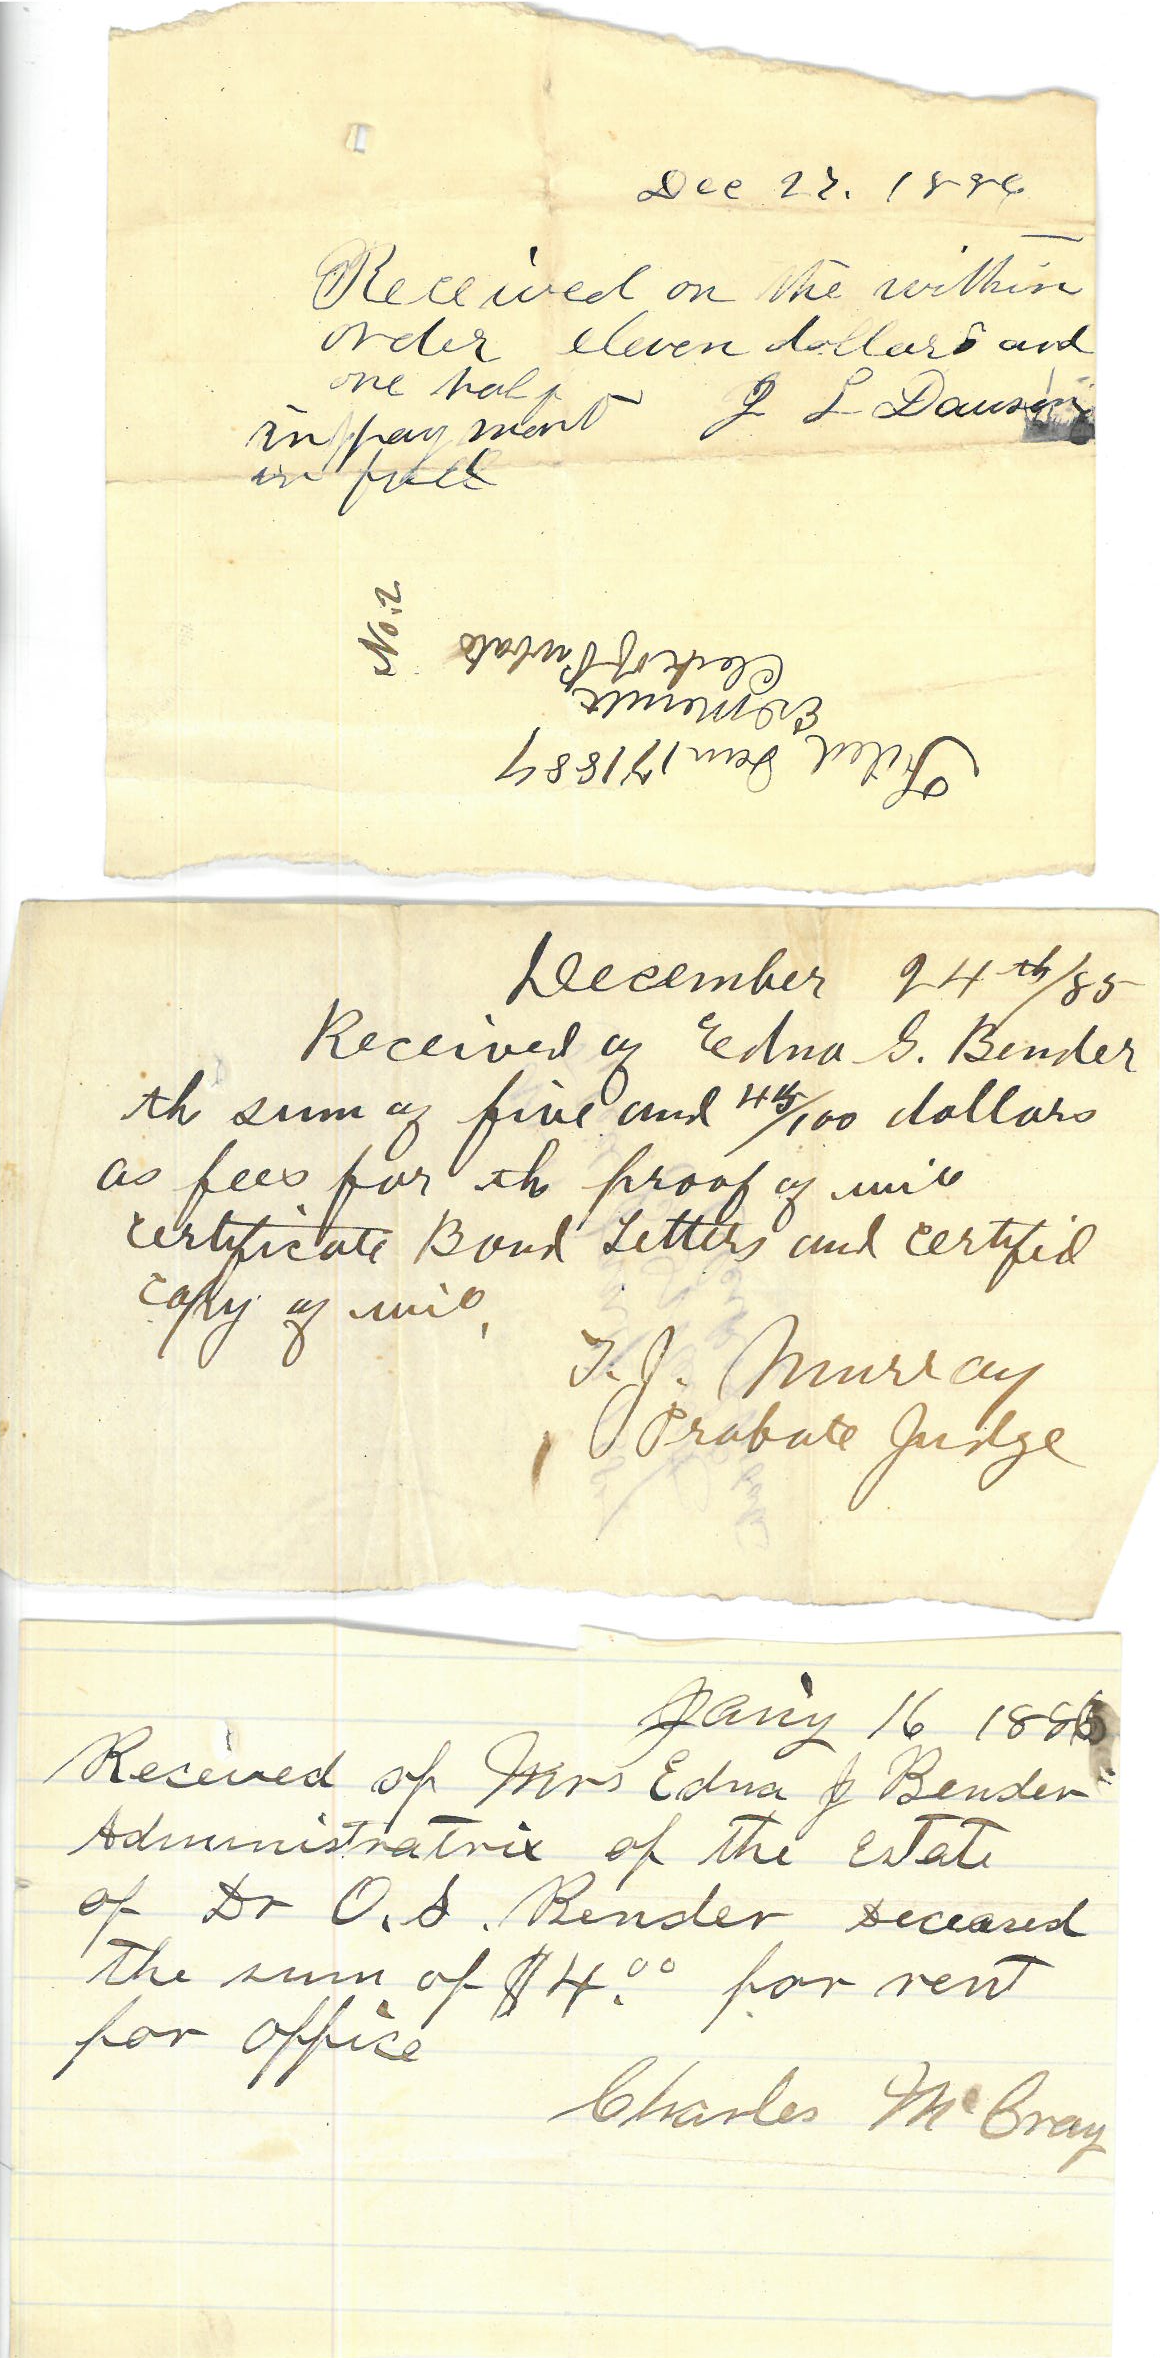 Dec 27. 1886
Received on the within
order eleven dollars and
one half
in payment J L Dawson
in full
No. 2
Filed Jan 17 1887
E D Merritt
Clerk of Probate
December 24th/85
Received of Edna G. Bender
th sum of five and 45/100 dollars
as fees for th proof of will
certificate Bond Letters and certifid
copy of will,
T. J. Murray
Probate Judge
Jany 16 1886
Reseived of Mrs Edna J Bender
Administratrix of the Estate
of Dr O. S. Bender deceased
the sum of $4.00 for rent
for office
Charles McCray